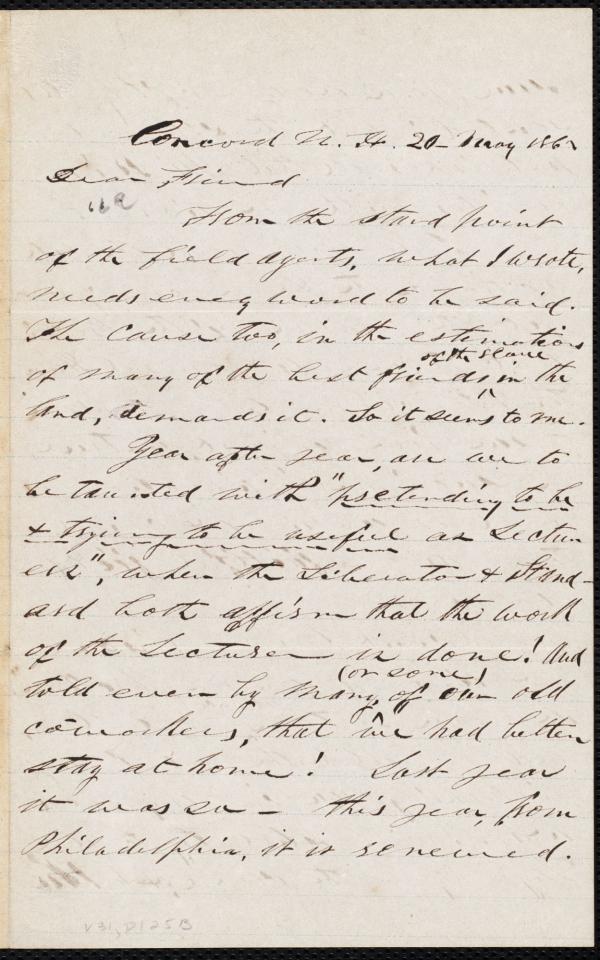 Concord N. H. 20 May 186
Dear Friend
From the stand point
of the field agents, what I wrote,
needs every word to be said.
The cause too, in the estimation
of the slave
of many of the best friends ^ in the
land, demands it. So it seems to me.
Year after year, are we to
be taunted with "pretending to be
& trying to be useful as Lectur
ers", when the Liberator & Stand-
ard both affirm that the work
of the Lecturer is done! And
(or some)
told even by many, of our old
coworkers, that "we" had better
stay at home! Last year
it was so - this year, from
Philadelphia, it is renewed.
V31, P125B